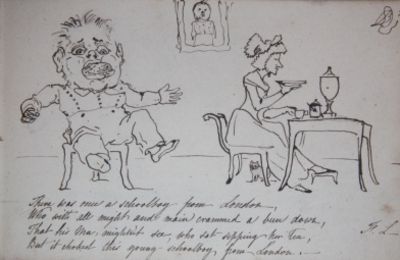 There was once a schoolboy from London,
Who with all might and main crammed a bun down,
That his Ma, mightn't see, who sat sipping her Tea,
But it choked this young schoolboy, from London.